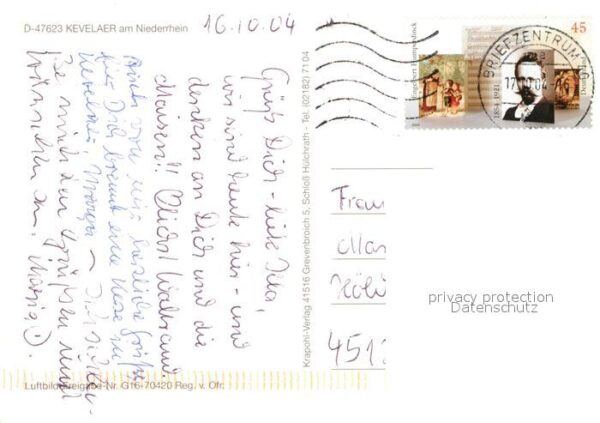 D-47623 KEVELAER am Niederrhein
16.10.04
Grüß Dich - liebe Ida,
wir sind heute hier - und
denken an Dich und die
Maisen!! Waltraud
Auch von mir herzliche Grüße
Für Dich brennt eine Kerze in
Kevelaer.
wünschen an!
Krapohl-Verlag 41516 Grevenbroich 5, Schloß Hülchrath - Tel. (02182) 71 04
Luftbildfreigabe-Nr. G16-70420 Reg. v. Ofr.
45
Engelbert Humperdinck
1854-1921
Deutschland
BRIEFZENTRUM
17.10.04
Frau
Mar
Höl
4512
privacy protection
Datenschutz